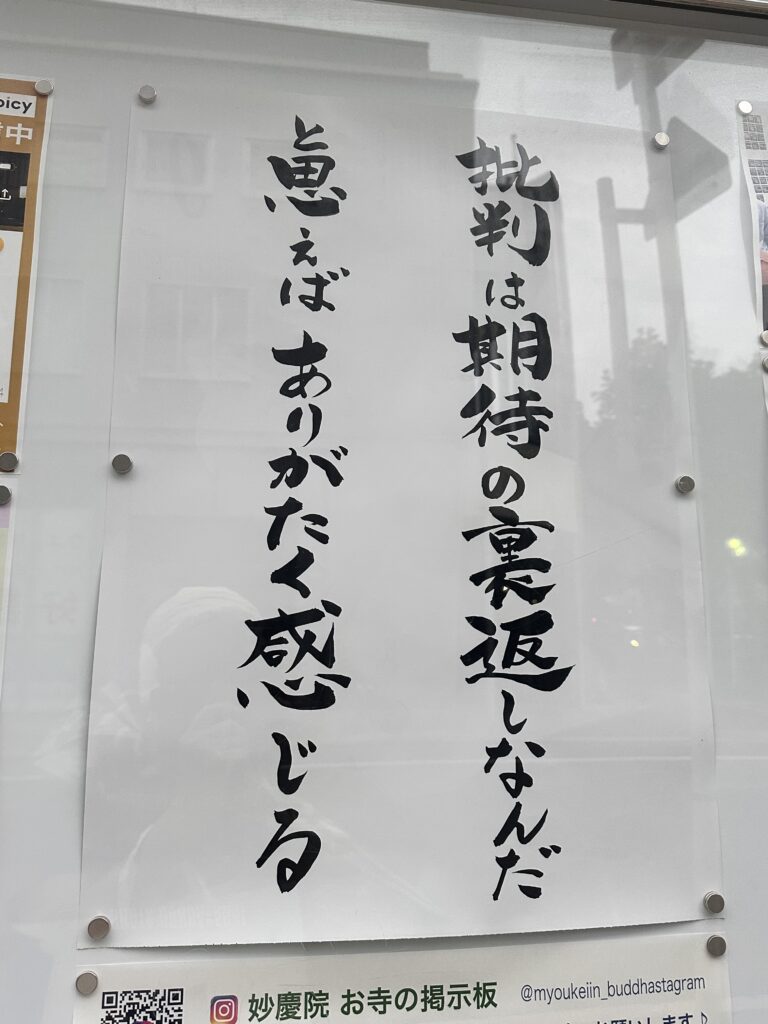 批判は期待の裏返しなんだ
と思えばありがたく感じる
picy
中
妙慶院 お寺の掲示板
@myoukeiin_buddhastagram
します♪